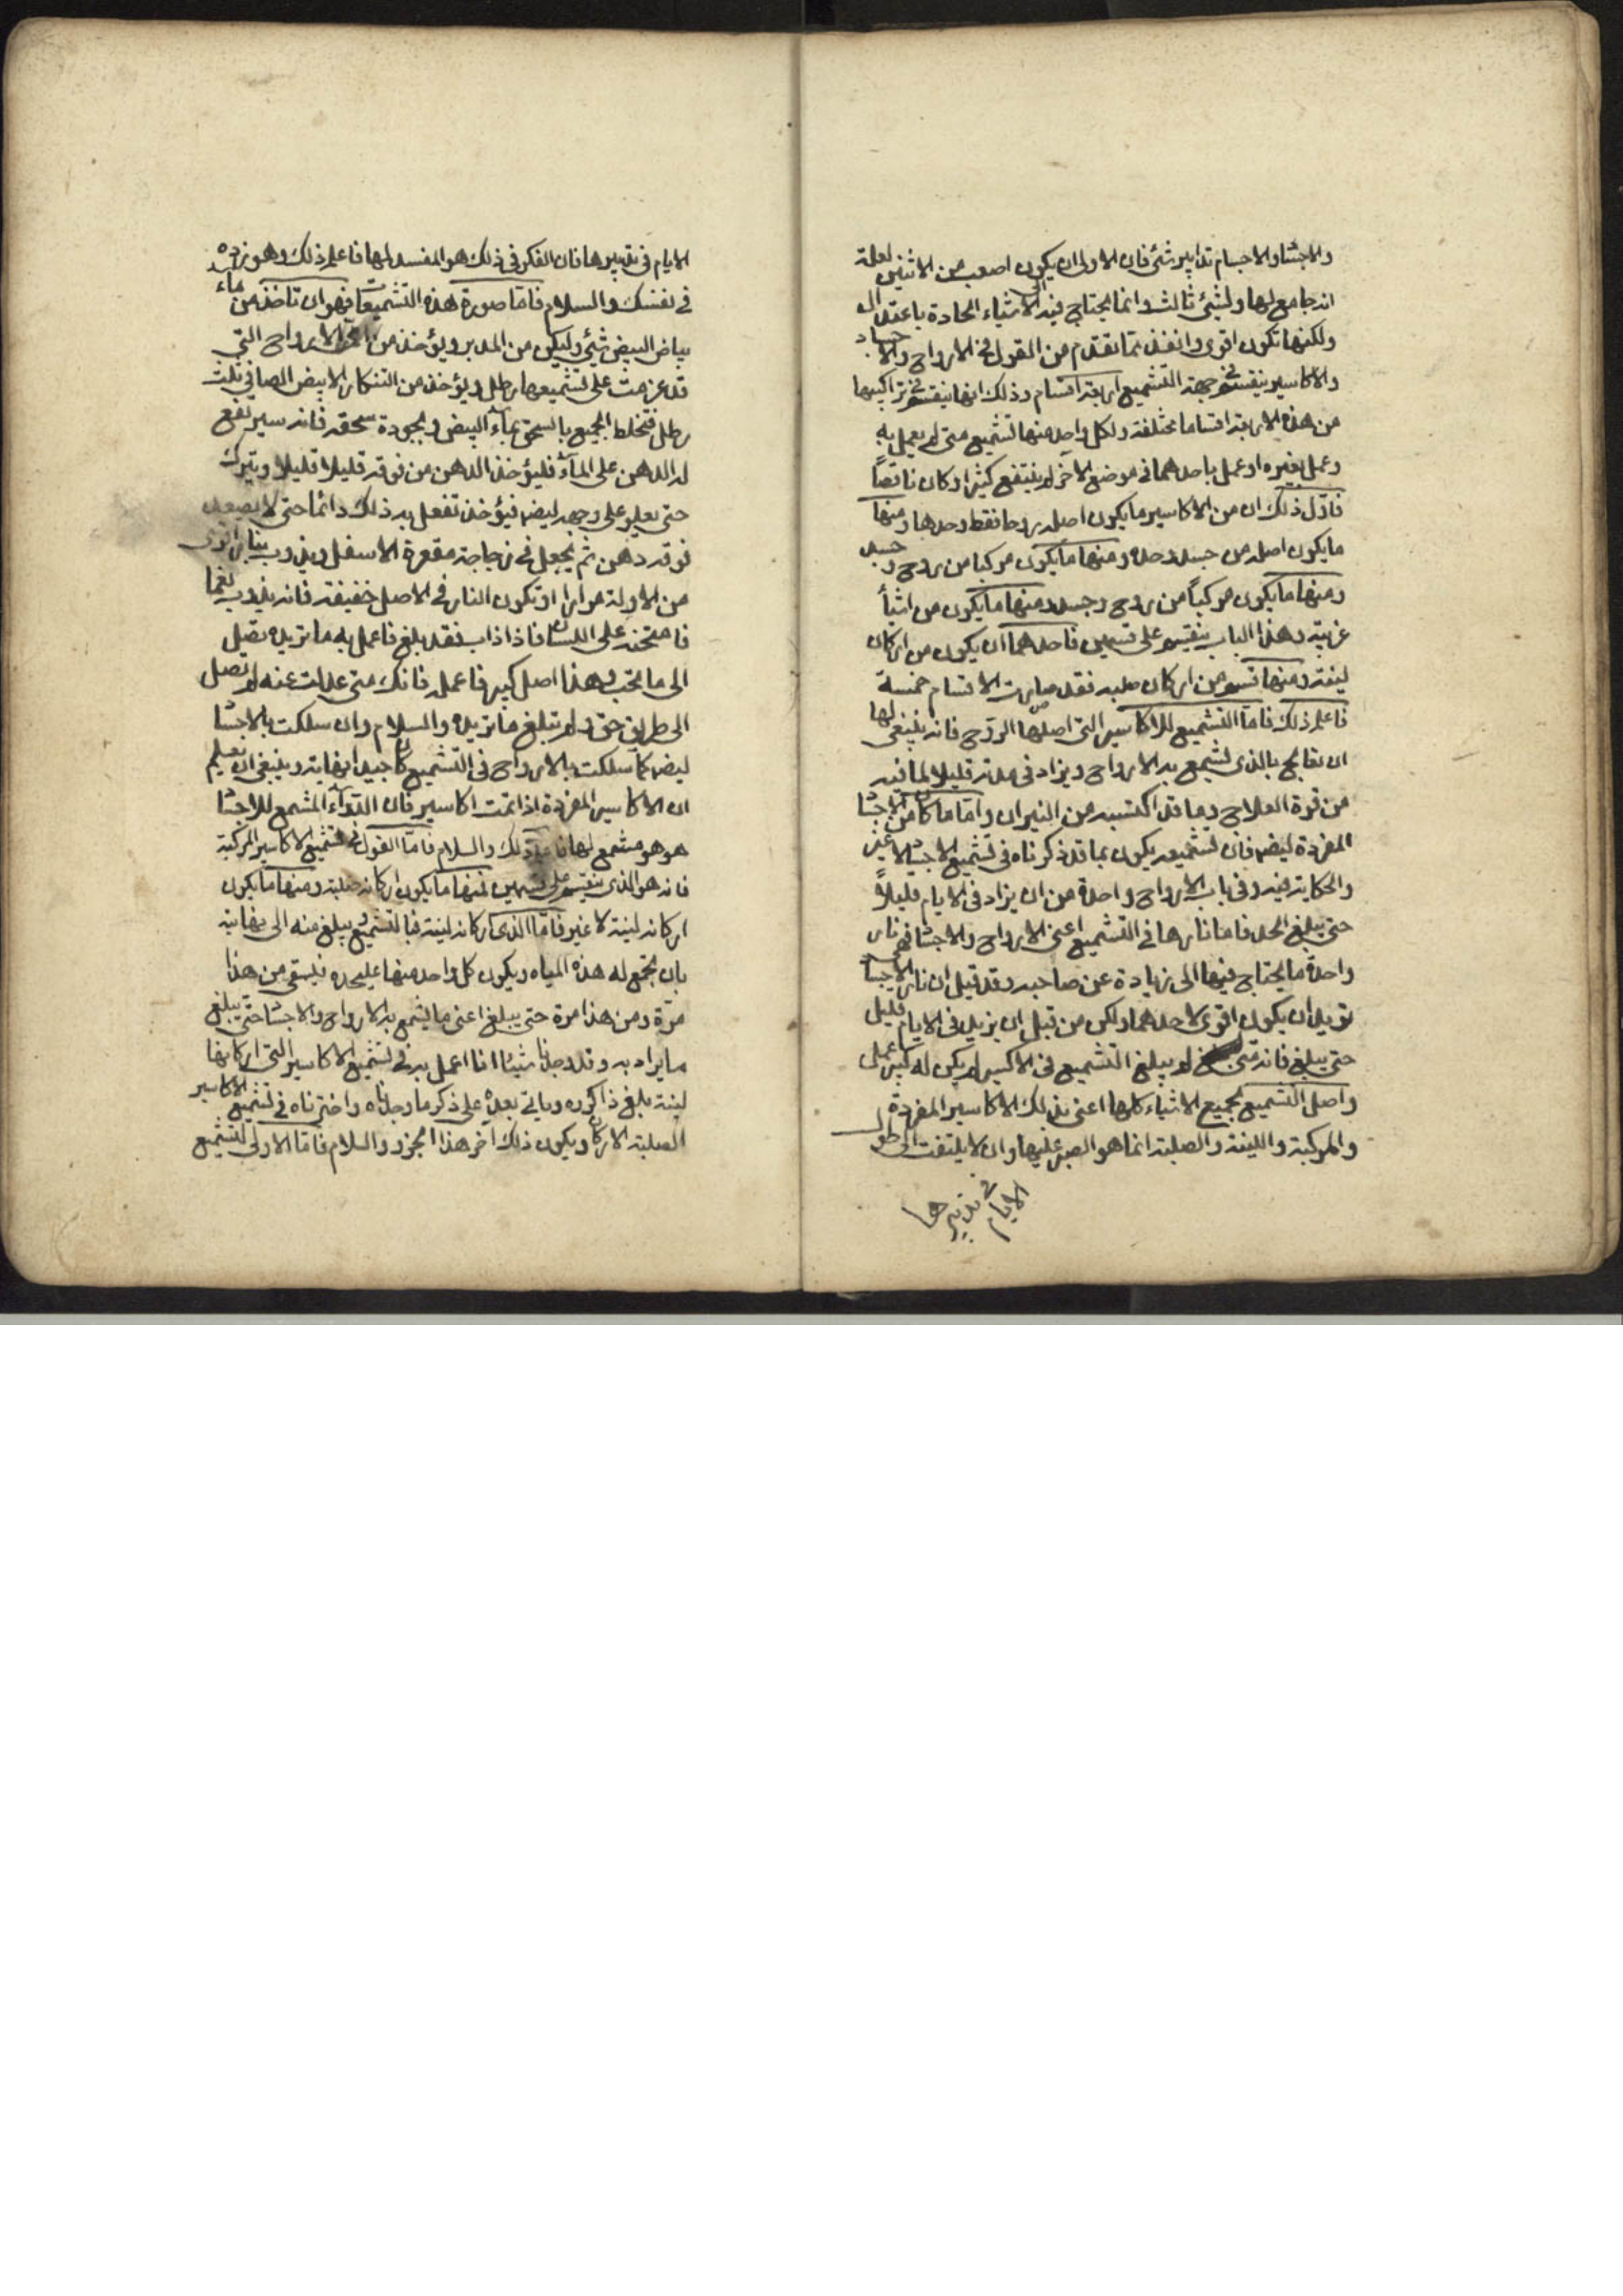 والاجساد والاجسام تدابير شئ فان الاولى ان يكون اصعب من الاثنين لعلة
انه جامع لهما ولشئ ثالث وانما يحتاج فيه الى الاشياء الحادة باعتدال
ولكنها تكون اقوى وانفذ مما تقدم من القول فى الارواح والاجساد
والاكاسير ينقسم من جهة التشميع اربعة اقسام وذلك انها ينقسم فى تراكيبها
من هذه الاربعة اقساما مختلفة ولكل واحد منها تشميع متى لم يعمل به
وعمل بغيره او عمل باحدهما فى موضع الاخر لم ينتفع كثيرا وكان ناقصاً
فاول ذلك ان من الاكاسير ما يكون اصله روحا فقط وحدها ومنها
ما يكون اصله من جسد وحده ومنها ما يكون مركبا من روح وجسد
ومنها ما يكون مركباً من روح وجسد ومنها ما يكون من اشيأ
غريبة وهذا الباب ينقسم على قسمين فاحدهما ان يكون من اركان
لينة ومنها قسم من اركان صلبه فقد صارت الاقسام خمسة
فاعلم ذلك فاما التشميع للاكاسير التى اصلها الروح فانه ينبغى لها
ان تعالج بالذى تشمع به الارواح ويزاد فى مدته قليلا لما فيه
من قوة العلاج وما قد اكتسبه من النيران واما ما كان من الاجساد
المفردة ايضا فان تشميعه يكون بما قد ذكرناه فى تشميع الاجساد لا غير
والحكاية فيه وفى باب الارواح واحدة من ان يزاد فى الايام قليلاً
حتى يبلغ الحد فاما نارها فى التشميع اعنى الارواح والاجساد فهى نار
واحدة ما يحتاج فيها الى زيادة عن صاحبه وقد قيل ان نار الاجساد
تريد ان يكون اقوى لاحدهما ولكن من قبل ان يزيد فى الايام قليل
حتى يبلغ فانه متى لم يبلغ التشميع فى الاكسير لم يكن له كبير عمل
واصل التشميع لجميع الاشياء كلها اعنى بذلك الاكاسير المفردة
والمركبة واللينة والصلبة انما هو الصبر عليها وان لا يلتفت الى طول
الايام فى تدبيرها
الايام فى تدبيرها فان الفكر فى ذلك هو المفسد لها فاعلم ذلك وهو زده
فى نفسك والسلام فاما صورة هذه التشميعات فهو ان تاخذ من ماء
بياض البيض شئ وليكن من المدبر ويؤخذ من الارواح التى
قد عزمت على تشميعها رطل ويؤخذ من التنكار الابيض الصافى ثلث
رطل فتخلط الجميع بالسحق بماء البيض ويجوده سحقه فانه سيرتفع
له الدهن على المآء فليؤخذ الدهن من فوقه قليلا قليلا ويترك
حتى يعلو على وجهه ايضا فيؤخذ تفعل به ذلك دائما حتى لا يصعد
فوقه دهن ثم يجعل فى زجاجة مقعرة الاسفل ويذوب بنار اقوى
من الاولة مرارا او تكون النار فى الاصل خفيفة فانه يذوب نعما
فامتحنه على اللسان فاذا ذاب فقد بلغ فاعمل به ما تريده تصل
الى ما تحب وهذا اصل كبير فاعمله فانك متى عدلت عنه لم تصل
الى طريق حق ولم تبلغ ما تريده والسلام وان سلكت بالاجساد
ايضا كما سلكت بالارواح فى التشميع كان جيدا نهاية وينبغى ان تعلم
ان الاكاسير المفردة اذا تمت اكاسير فان الدوآء المشمع للاجساد
هو هو مشمع لها فاعلم ذلك والسلام فاما القول فى تشميع الاكاسير المركبة
فانه هو الذى ينقسم على قسمين فمنها ما يكون اركانه صلبة ومنها ما يكون
اركانه لينة لا غير فاما الذى اركانه لينة فبالتشميع ويبلغ منه الى نهايته
بان يجمع له هذه المياه ويكون كل واحد منها عليحده فيسقى من هذا
مرة ومن هذا مرة حتى يبلغ اعنى ما يشمع به الارواح والاجساد حتى يبلغ
ما يراد به وقد وجدنا شيئا انا اعمل به فى تشميع الاكاسير التى اركانها
لينة بليغ ذاكروه ويأتى بعده على ذكر ما وجدناه واخترناه فى تشميع الاكاسير
الصلبة الاركان ويكون ذلك آخر هذا الجزء والسلام فاما الاولى لتشميع